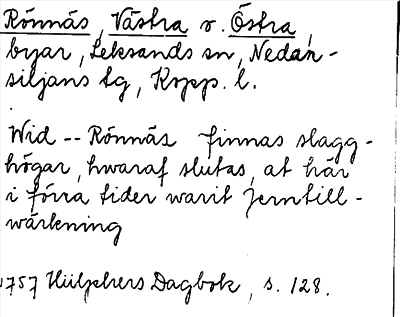 Rönnäs, Västra o. Östra,
byar, Leksands sn, Nedan-
siljans tg, Kopp. l.
Wid -- Rönnäs finnas slagg-
högar, hwaraf slutas, at här
i förra tider warit Jerntill-
wärkning
1757 Hülphers Dagbok, s. 128.